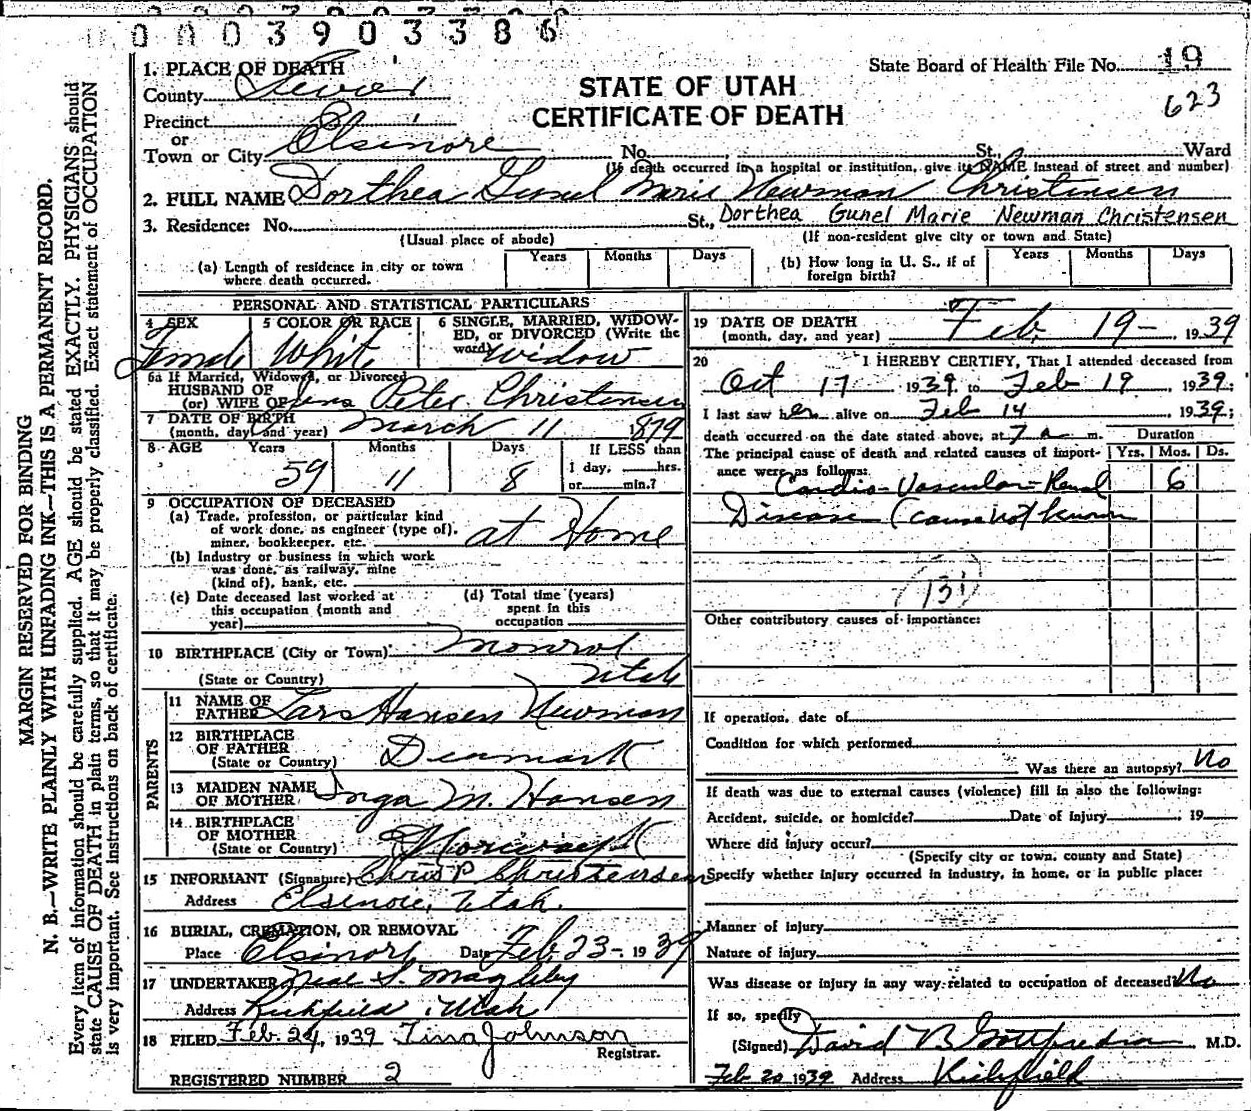 0 0 0 3 9 0 3 3 8 6
1. PLACE OF DEATH
County Sevier
Precinct
or
Town or City Elsinore
STATE OF UTAH
CERTIFICATE OF DEATH
State Board of Health File No. 19
623
No. St., Ward
(If death occurred in a hospital or institution, give its NAME instead of street and number)
2. FULL NAME Dorthea Gunel Marie Newman Christensen
3. Residence: No. St., Dorthea Gunel Marie Newman Christensen
(Usual place of abode) (If non-resident give city or town and State)
(a) Length of residence in city or town where death occurred. Years Months Days
(b) How long in U. S., if of foreign birth? Years Months Days
PERSONAL AND STATISTICAL PARTICULARS
4 SEX 5 COLOR OR RACE 6 SINGLE, MARRIED, WIDOW-
ED, or DIVORCED (Write the
word)
Female White Widow
6a If Married, Widowed, or Divorced
HUSBAND OF
(or) WIFE OF Jens Peter Christensen
7 DATE OF BIRTH
(month, day, and year) March 11 1879
8 AGE Years Months Days If LESS than
1 day, hrs.
or min.?
59 11 8
9 OCCUPATION OF DECEASED
(a) Trade, profession, or particular kind
of work done, as engineer (type of),
miner, bookkeeper, etc. at Home
(b) Industry or business in which work
was done, as railway, mine
(kind of), bank, etc.
(c) Date deceased last worked at
this occupation (month and
year)
(d) Total time (years)
spent in this
occupation
10 BIRTHPLACE (City or Town) Monroe
(State or Country) Utah
PARENTS
11 NAME OF
FATHER Lars Hansen Newman
12 BIRTHPLACE
OF FATHER
(State or Country) Denmark
13 MAIDEN NAME
OF MOTHER Inga M. Hansen
14 BIRTHPLACE
OF MOTHER
(State or Country)
15 INFORMANT (Signature) Chris P Christensen
Address Elsinore, Utah.
16 BURIAL, CREMATION, OR REMOVAL
Place Elsinore Date Feb 23- 1939
17 UNDERTAKER Neal S. Magleby
Address Richfield Utah
18 FILED Feb. 24, 1939 Tina Johnson
Registrar.
REGISTERED NUMBER 2
19 DATE OF DEATH
(month, day, and year) Feb. 19- 1939
20 I HEREBY CERTIFY, That I attended deceased from
Oct 17 1939, to Feb 19, 1939;
I last saw her alive on Feb 14, 1939;
death occurred on the date stated above, at 7 a m.
The principal cause of death and related causes of import-
ance were as follows:
Duration
Yrs. Mos. Ds.
Cardio-Vascular-Renal 6
Disease (cause not known
131
Other contributory causes of importance:
If operation, date of
Condition for which performed
Was there an autopsy? No
If death was due to external causes (violence) fill in also the following:
Accident, suicide, or homicide? Date of injury, 19
Where did injury occur?
(Specify city or town, county and State)
Specify whether injury occurred in industry, in home, or in public place:
Manner of injury
Nature of injury
Was disease or injury in any way related to occupation of deceased? No
If so, specify
(Signed) David B Gottfredson M.D.
Feb 20 1939 Address Richfield
MARGIN RESERVED FOR BINDING
N. B.—WRITE PLAINLY WITH UNFADING INK—THIS IS A PERMANENT RECORD.
Every item of information should be carefully supplied. AGE should be stated EXACTLY. PHYSICIANS should
state CAUSE OF DEATH in plain terms, so that it may be properly classified. Exact statement of OCCUPATION
is very important. See instructions on back of certificate.